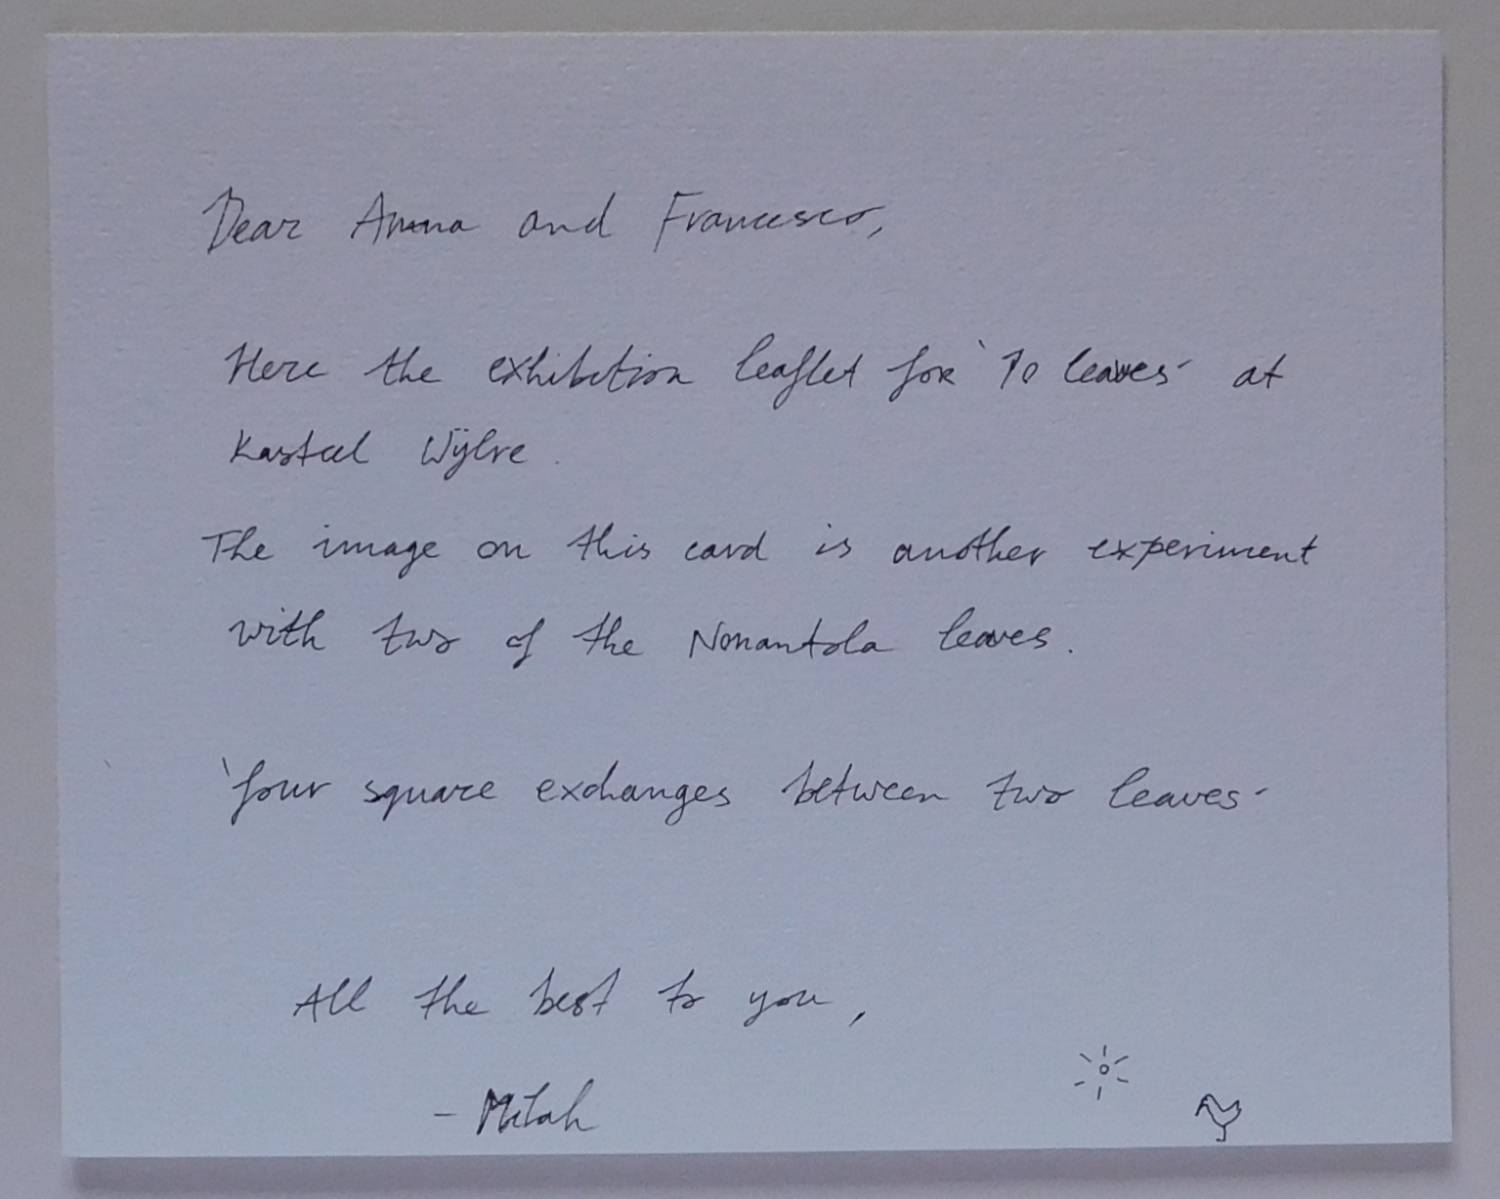 Dear Anna and Francesco,
Here the exhibition leaflet for '70 leaves' at
Kasteel Wijlre.
The image on this card is another experiment
with two of the Nonantola leaves.
'four square exchanges between two leaves'
All the best to you,
-